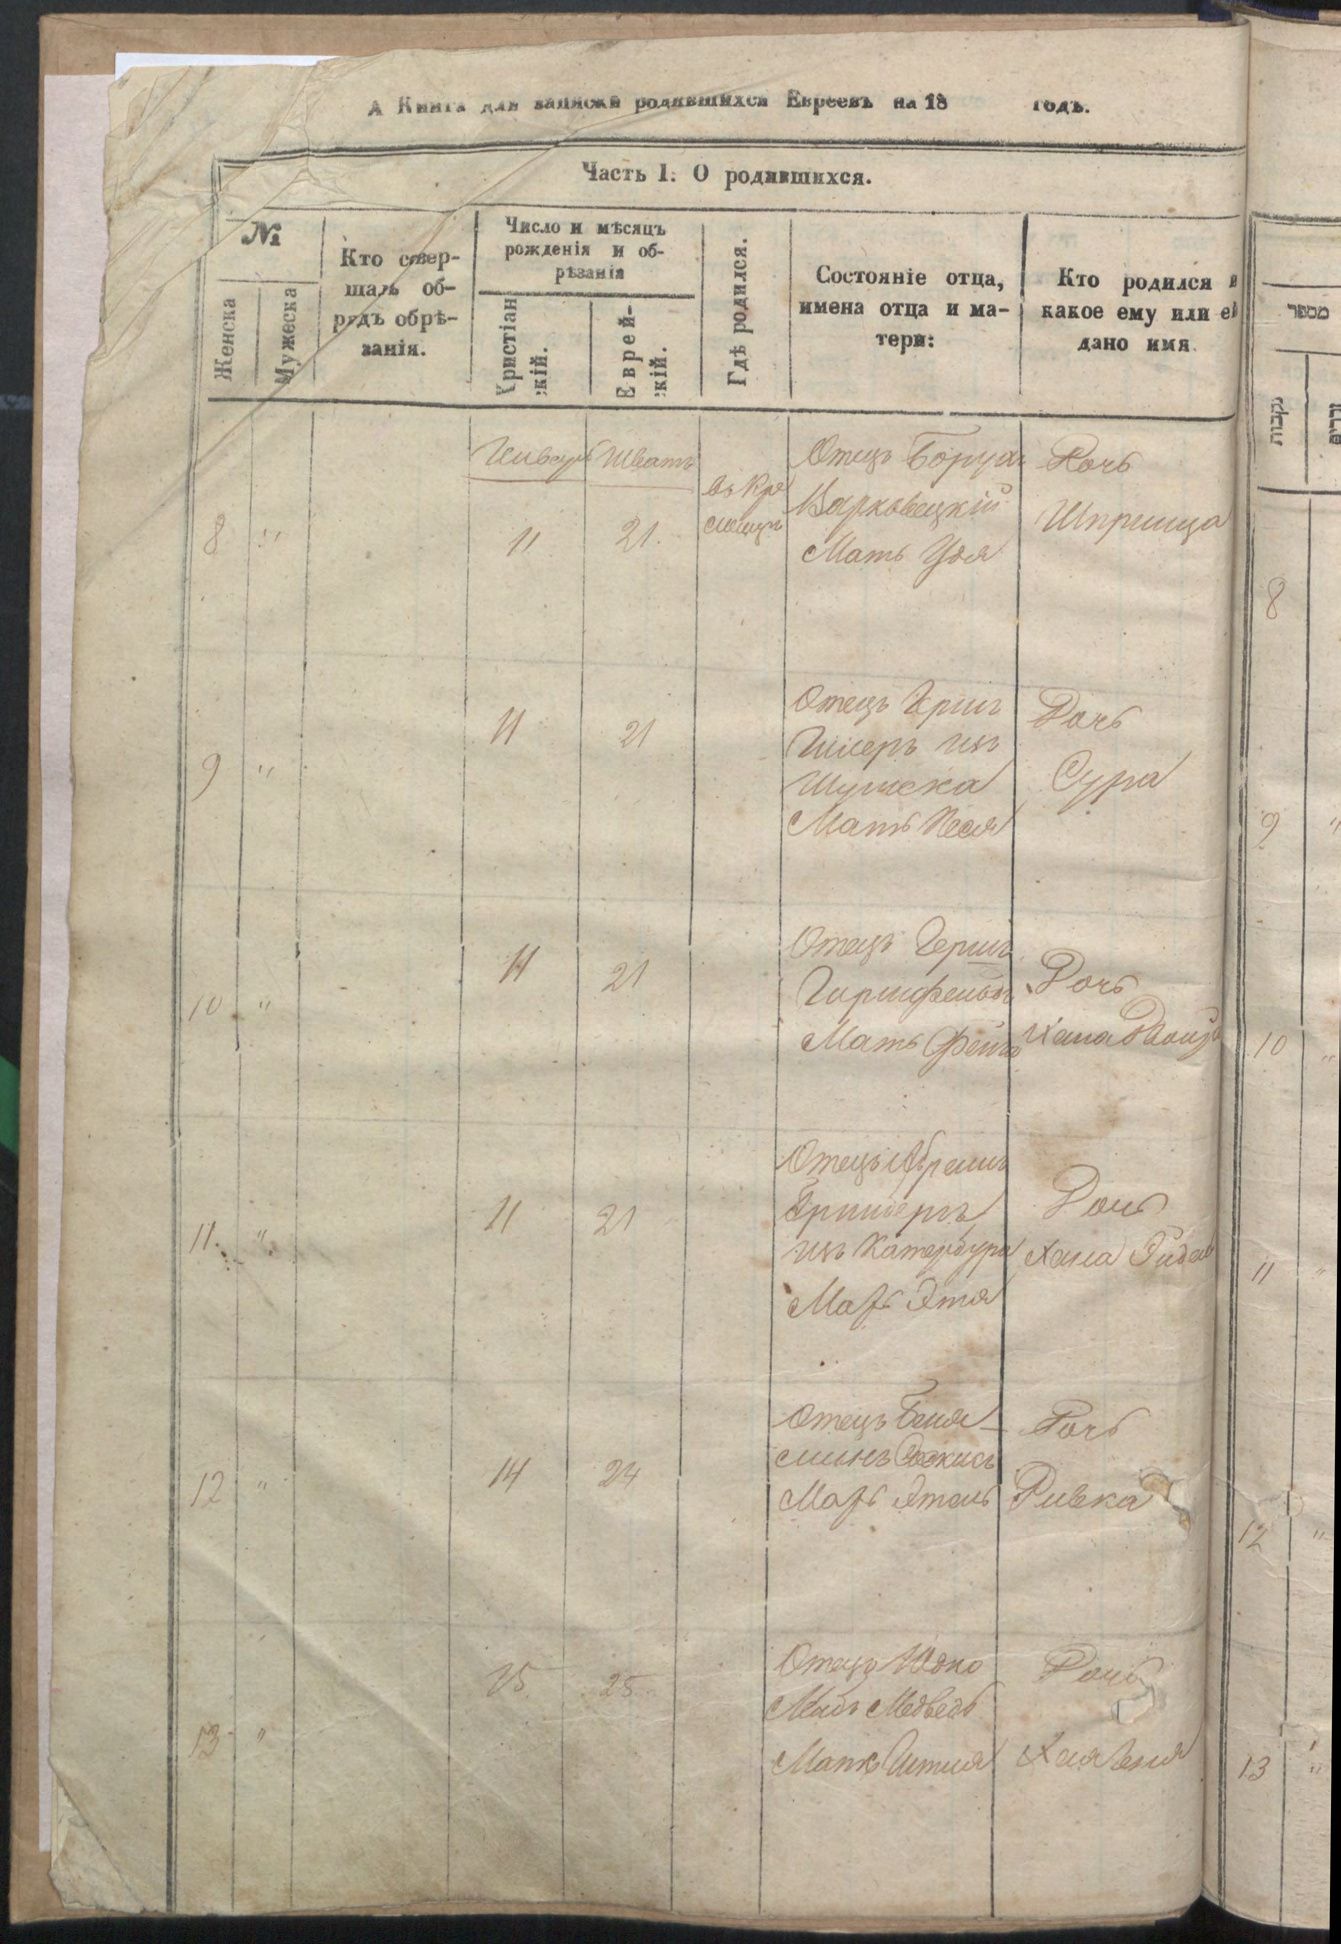 А Книга для записки родившихся Евреевъ на 18 годъ.
Часть I. О родившихся.
№
Женска
Мужеска
Кто совер-
шалъ об-
рядъ обрѣ-
занія.
Число и мѣсяцъ
рожденія и об-
рѣзанія
Христіан
скій.
Еврей-
скій.
Гдѣ родился.
Состояніе отца,
имена отца и ма-
тери:
Кто родился и
какое ему или ей
дано имя
מספר
נקבות
זכרים
Январь Шватъ
8 " 11 21.
въ Кре
менцъ
Отецъ Борухъ
Варковецкій
Мать Удя
Дочь
Шпринца
8
9 " 11 21
Отецъ Гершъ
из
Шумска
Мать Песя
Дочь
Сура
9 "
10 " 11 21
Отецъ Гершъ
Мать
Дочь
Хана
10 "
11. " 11 21
Отецъ Абрамъ
изъ Катербурга
Мать Этя
Дочь
Хана
11 "
12 " 14 24
Отецъ Беня-
минъ
Мать Этель
Дочь
Ривка
12 "
13 " 15 25
Отецъ
Медведь
Мать
Дочь
13 "